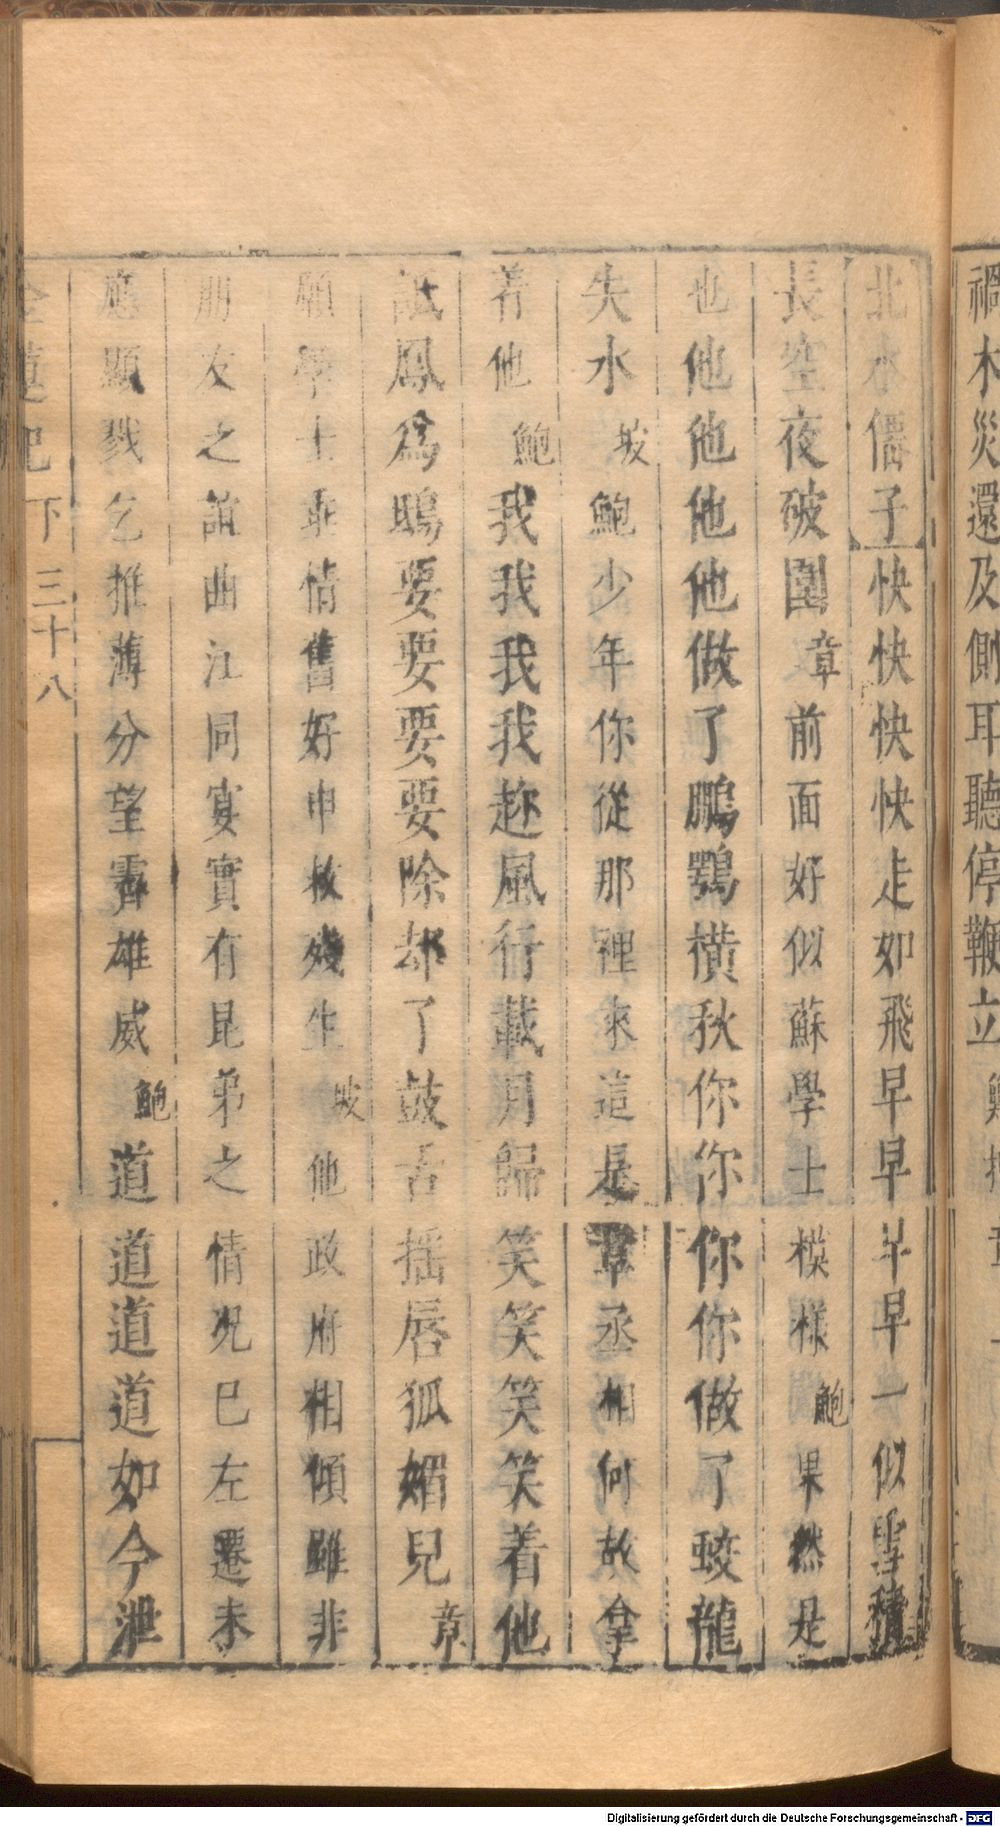 禍木災還及側耳聽停鞭立
北水僊子快快快快走如飛早早早早一似雪積
長空夜破圍章前面好似蘇學士模樣鮑果然是
也他他他他做了鵬鶚橫秋你你你你做了蛟龍
失水坡鮑少年你從那裡來這是章丞相何故拿
着他鮑我我我我趂風行載月歸笑笑笑笑着他
詆鳳爲鴟要要要要除却了鼓舌揺唇狐媚兒章
願學士垂情舊好申救殘生坡他政府相傾雖非
朋友之誼曲江同宴實有昆弟之情况巳左遷未
應顯戮乞推薄分望霽雄威鮑道道道道如今泄
金蓮記 下 三十八
Digitalisierung gefördert durch die Deutsche Forschungsgemeinschaft - DFG